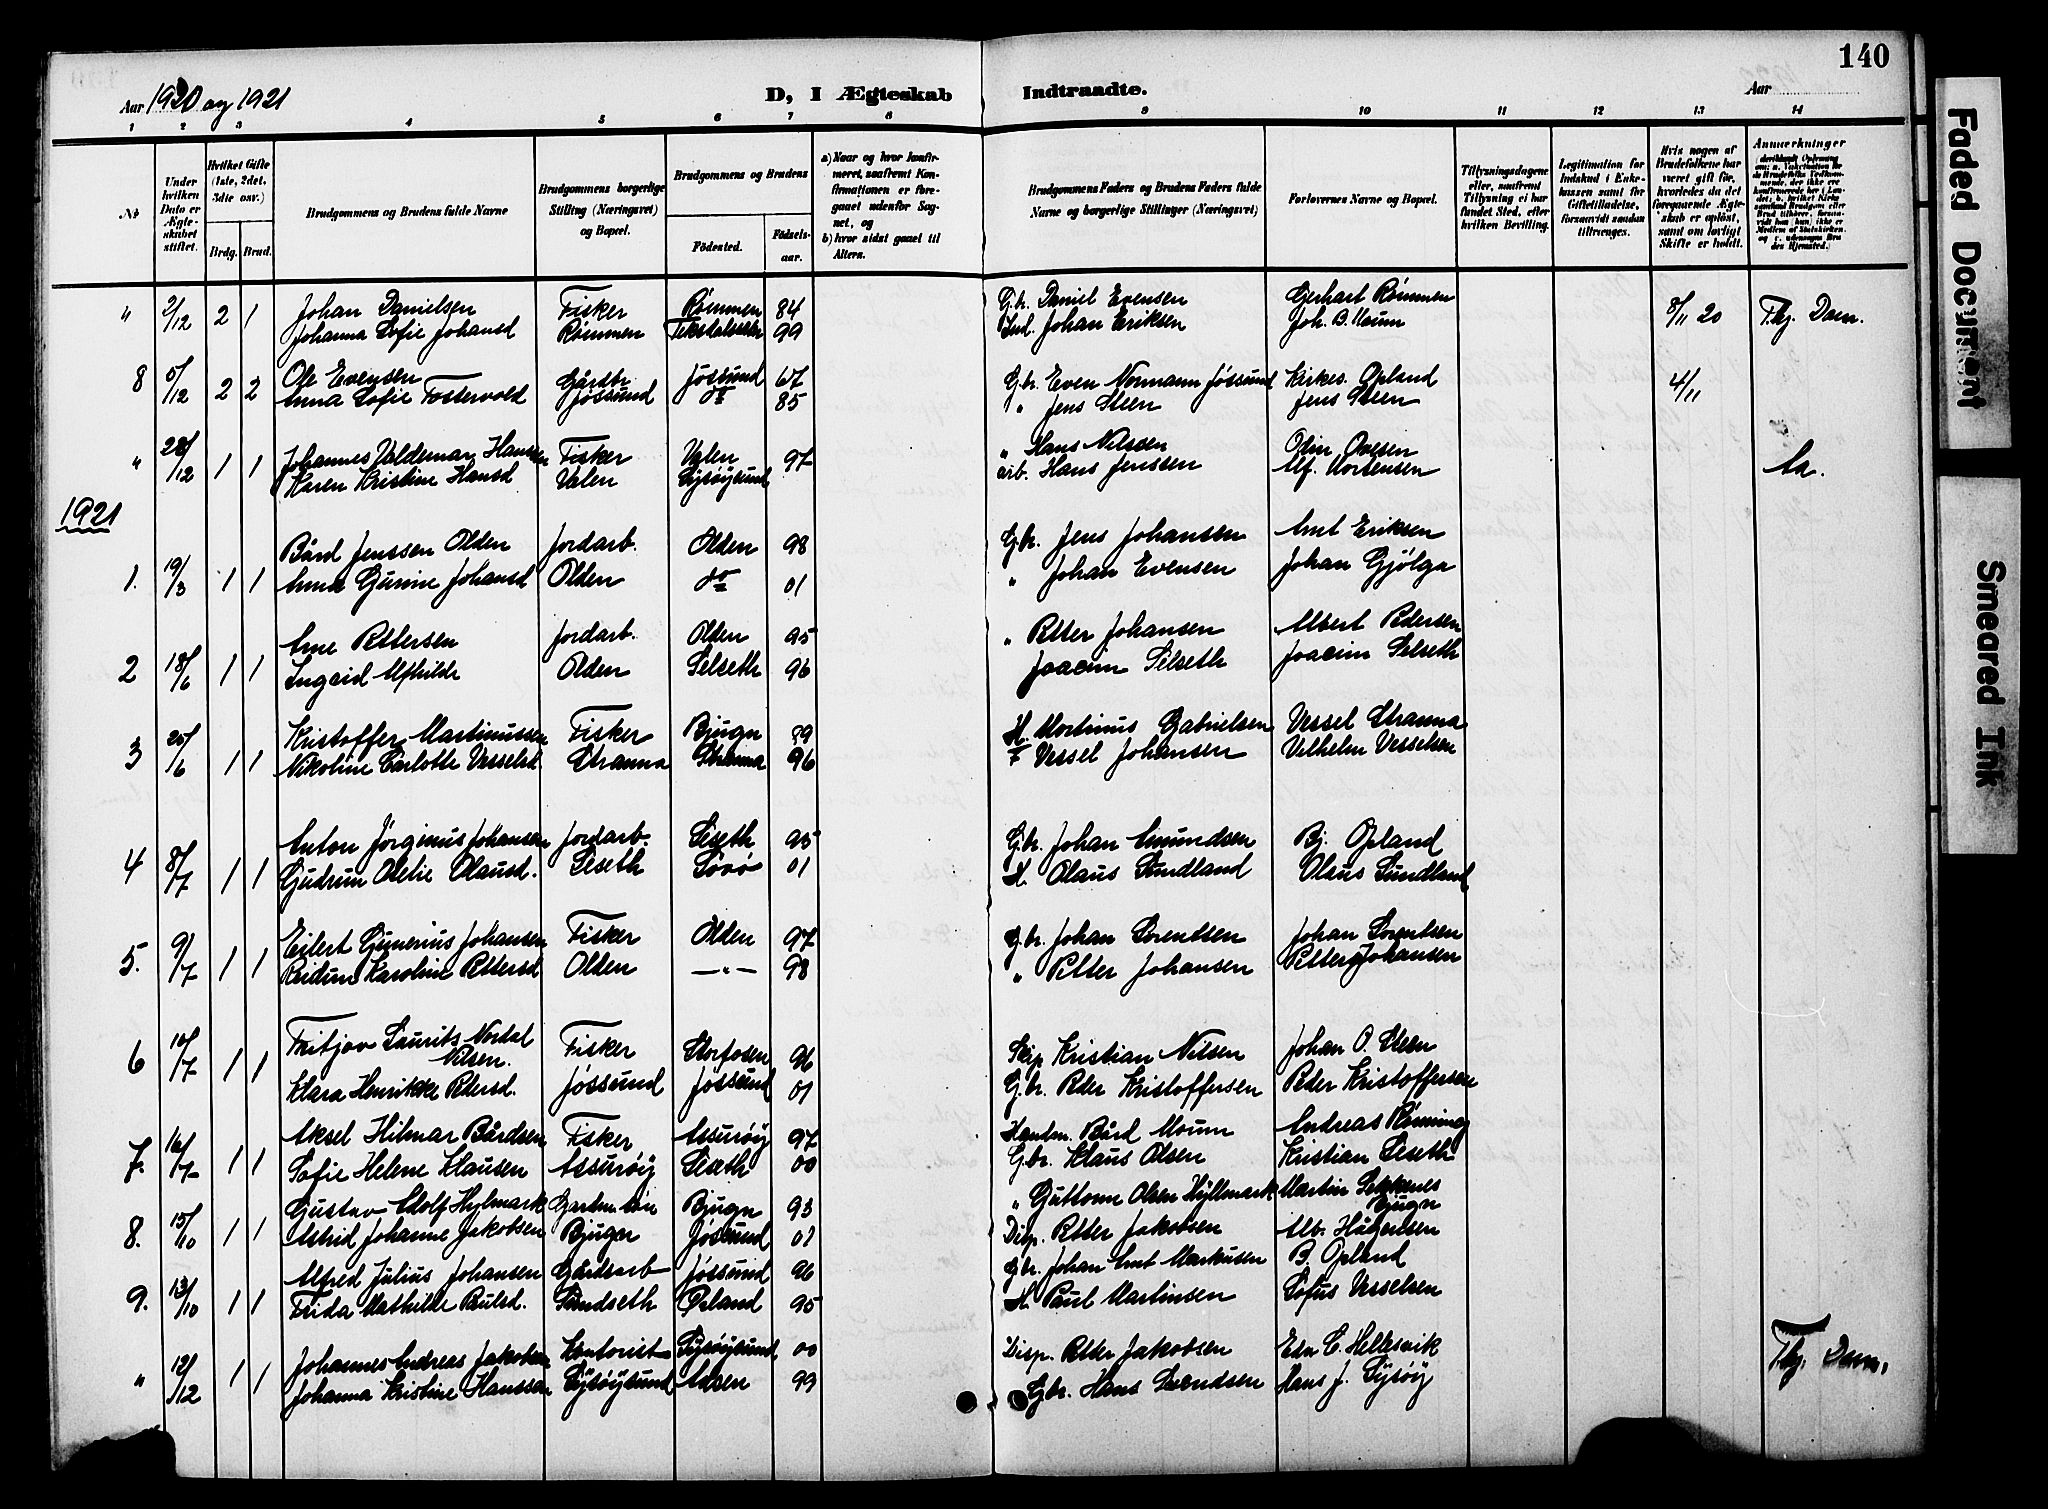 140
Aar 1920 og 1921
D, I Ægteskab Indtraadte.
Aar
1 2 3 4 5 6 7 8 9 10 11 12 13 14
No
Under hvilken Dato er Ægteskabet stiftet.
Hvilket Gifte (1ste, 2det, 3die osv.)
Brdg. Brud.
Brudgommens og Brudens fulde Navne
Brudgommens borgerlige Stilling (Næringsvei) og Bopæl.
Brudgommens og Brudens
Födested.
Födselsaar.
a) Naar og hvor konfirmeret, saafremt Konfirmationen er foregaaet udenfor Sognet, og
b) hvor sidst gaaet til Alters.
Brudgommens Faders og Brudens Faders fulde Navne og borgerlige Stillinger (Næringsvei)
Forlovernes Navne og Bopæl.
Tillysningsdagene eller, saafremt Tillysning ei har fundet Sted, efter hvilken Bevilling.
Legitimation for Indskud i Enkekassen samt for Giftetilladelse, forsaavidt saadan tiltrænges.
Hvis nogen af Brudefolkene har været gift för, hvorledes da det foregaaende Ægteskab er oplöst, samt om lovligt Skifte er holdt.
Anmærkninger
" 2/12 2 1 Johan Danielsen Fisker Rømmen 84 G.br. Daniel Evensen Gerhart Rømmen 8/11 20 Thj. Dom.
Johanna Sofie Johansd Rømmen 99 Ind. Johan Eriksen Joh. B. Moum
8 5/12 2 2 Ole Evensen Gårdbr Jøssund 67 G.br. Even Normann Jøssund Kirkes. Opland 4/11
Anna Sofie Tostervold Jøssund do 85 " Jens Steen Jens Steen
" 28/12 1 1 Johannes Valdemar Hansen Fisker Valen 97 " Hans Nilssen Odin Ovesen Aa.
Karen Kristine Hansd Valen Lysøysund arb. Hans Jenssen Alf. Mortensen
1921
Bård Jenssen Olden Jordarb. Olden 98 G.br. Jens Johansen Arnt Eriksen
1. 19/3 1 1 Anna Gurine Johansd Olden do 01 " Johan Evensen Johan Gjølga
Arne Pettersen Jordarb. Olden 95 " Petter Johansen Albert Pedersen
2 18/6 1 1 Ingrid Alfhilde Olden Selseth 96 Joacim Selseth Joacim Selseth
Kristoffer Martinussen Fisker Bjugn 89 H. Martinus Gabrielsen Vessel Stranna
3 20/6 1 1 Nikoline Carlotte Vesselsd. Stranna Stranna 96 F Vessel Johansen Velhelm Vesselsen
Anton Jørginus Johansen Jordarb. Seseth 95 G.br. Johan Amundsen Bj. Opland
4 8/7 1 1 Gudrun Otelie Olausd. Seseth Sövö 01 H. Olaus Sundland Olaus Sundland
Eilert Gunerius Johansen Fisker Olden 97 G.br. Johan Sorentsen Johan Sorentsen
5. 9/7 1 1 Reidun Karoline Pettersd Olden —"— 98 " Petter Johansen Petter Johansen
Fritjov Laurits Nordal
6 10/7 1 1 Nilsen. Fisker Storfosen 96 Skip. Kristian Nilsen Johan O. Steen
Klara Henrikke Pedersd. Jøssund Jøssund 01 G.br. Peder Kristoffersen Peder Kristoffersen
Aksel Hilmar Bårdsen Fisker Assurøy 97 Handm. Bård Moum Andreas Rønning
7. 16/7 1 1 Sofie Helene Klausen Assurøy Seseth 00 G.br. Klaus Olsen Kristian Seseth
Gustav Adolf Hylmark Bjugn 93 " Guttorm Olsen Hyllmark Martin
Bjugn
8. 15/10 1 1 Astrid Johanne Jakobsen Bjugn Jøssund 01 Disp. Petter Jakobsen Alb. Hågensen
Alfred Julius Johansen Gårdsarb Jøssund 96 G.br. Johan Arnt Markusen B. Opland
9. 13/10 1 1 Frida Mathilde Paulsd. Sandseth Ørland 95 H. Paul Martinsen Sofus Vesselsen
Johannes Andreas Jakobsen Kontorist Lysøysund 00 Disp. Petter Jakobsen Edv. C. Hellesvik Thj. Dom.
" 12/12 1 1 Johanna Kristine Hanssen Lysøysund 99 Gbr. Hans Svendsen Hans J. Lysøy
Faded Document
Smeared Ink